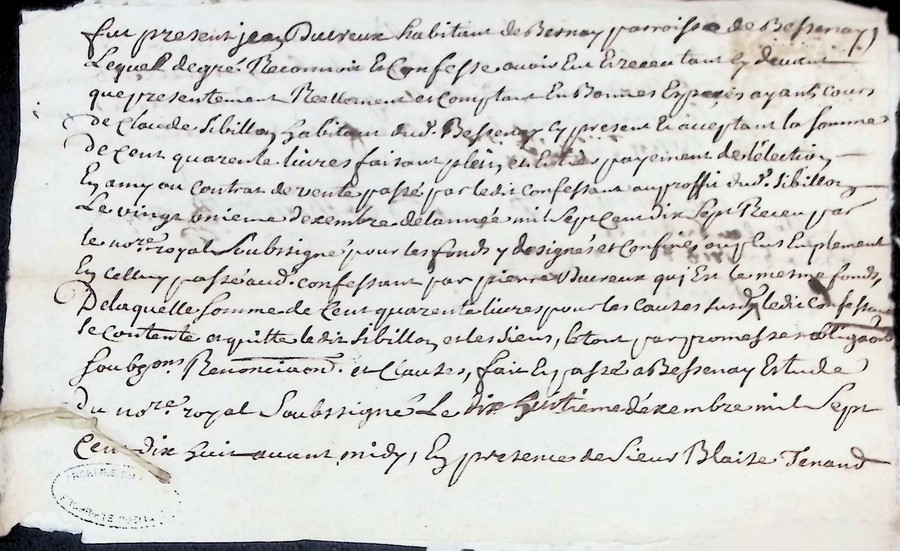 fut present jean Ducreux habitant de Bernay parroisse de Bessenay,
Lequel de gré Reconnoit Et Confesse avoir Eut Et receu tant Cy devant
que presentement Reellement et Comptant En Bonnes Especes ayant cours
de Claude Sibillon habitant dud. Bessenay Cy present Et acceptant la somme
de Cent quarente livres faisant plein et Entier payement de délection
En amy ou contrat de vente passé par ledit confessant au proffit dud. Sibillon
Le vingt unieme dexembre de lannée mil Sept Cent dix Sept Receu par
le nore. royal Soubssigné pour les fonds y designés et Confinés ou plus Emplement
En Celluy passé aud. confessant par pierre Ducreux qui Est le mesme fonds,
De laquelle Somme de Cent quarente livres pour les Causes susd. ledit Confessant
se contente et quitte ledit Sibillon et les Siens, le tout par promesses obligaons
soubgons. Renonciaon. et Clauses, fait Et passé a Bessenay Estude
du nore. royal Soubssigné Le dix huitieme dexembre mil Sept
Cent dix huit avant midy, En presence de Sieur Blaise Tenaud